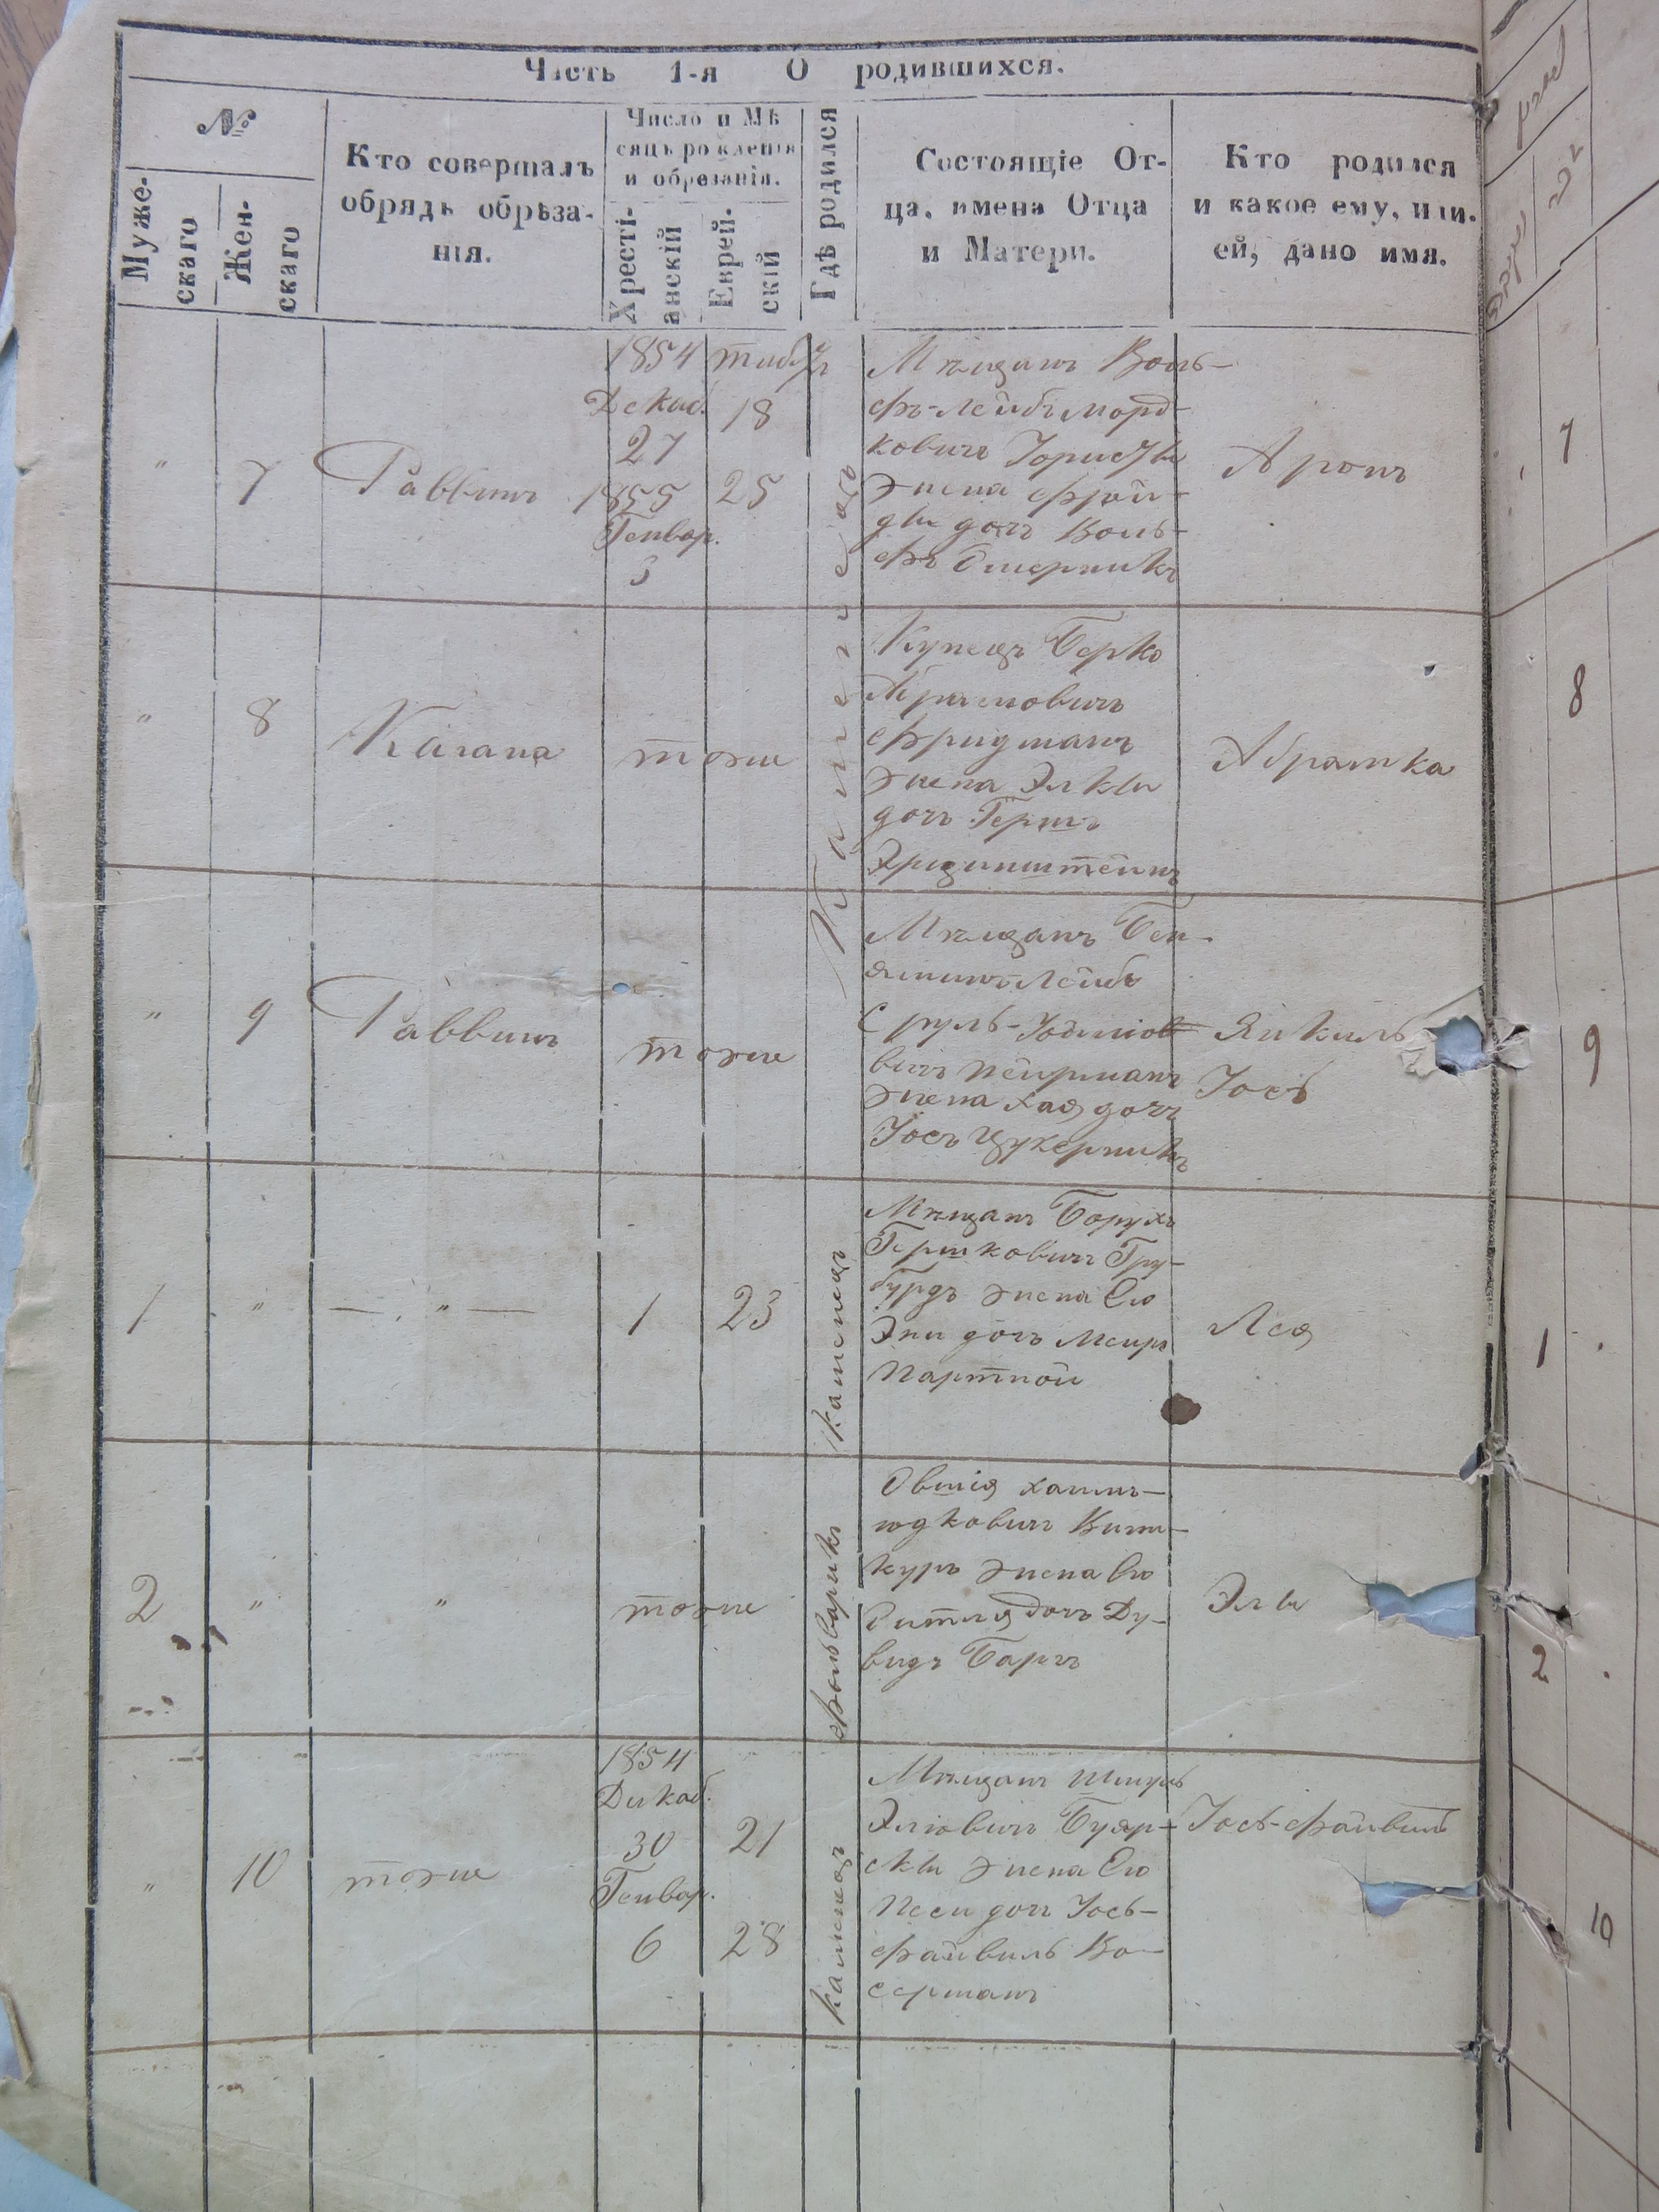 Часть 1-я О родившихся.
№
Мужескаго
Женскаго
Кто совершалъ
обрядъ обрѣза-
нія.
Число и Мѣ
сяцъ рожденія
и обрезанія.
Христі-
анскій
Еврей-
скій
Гдѣ родился
Состоящіе От-
ца, имена Отца
и Матери.
Кто родился
и какое ему, или
ей, дано имя.
" 7 Раввинъ
1854
Декаб. 18
27
1855 25
Генвар.
3
Каменецъ
Мѣщанъ Воль-
фъ-Лейбъ Морд-
ковичъ
жена Фрой-
ды дочъ Воль-
фъ
Аронъ
7
" 8 Кагана тоже
Купецъ Берко
Абрамовичъ
Фридманъ
жена Элькы
дочъ Гершъ
Абрамка
8
" 9 Раввинъ тоже
Мѣщанъ Бен-
яминъ Лейбъ
Сруль-
вичъ
жена Хая дочъ
Іосъ Цукерникъ
Янкиль
Іось
9
1 " — " — 1 23
Каменецъ
Мѣщанъ Борухъ
Гершковичъ Гру-
бурдъ жена Его
Эни дочъ Меиръ
Партной
Лея
1
2 " " тоже
Фольварикъ
Овшія Хаимъ-
юдковичъ Вини-
куръ жена Его
дочъ Ду-
видъ Баричъ
Элы
2
" 10 тоже
1854
Декаб.
30 21
Генвар.
6 28
Каменецъ
Мѣщанъ Шмуль
Эліовичъ Буяр-
скы жена Его
Песи дочъ Іось-
файвиль Во-
серманъ
Іось-файвиль
10